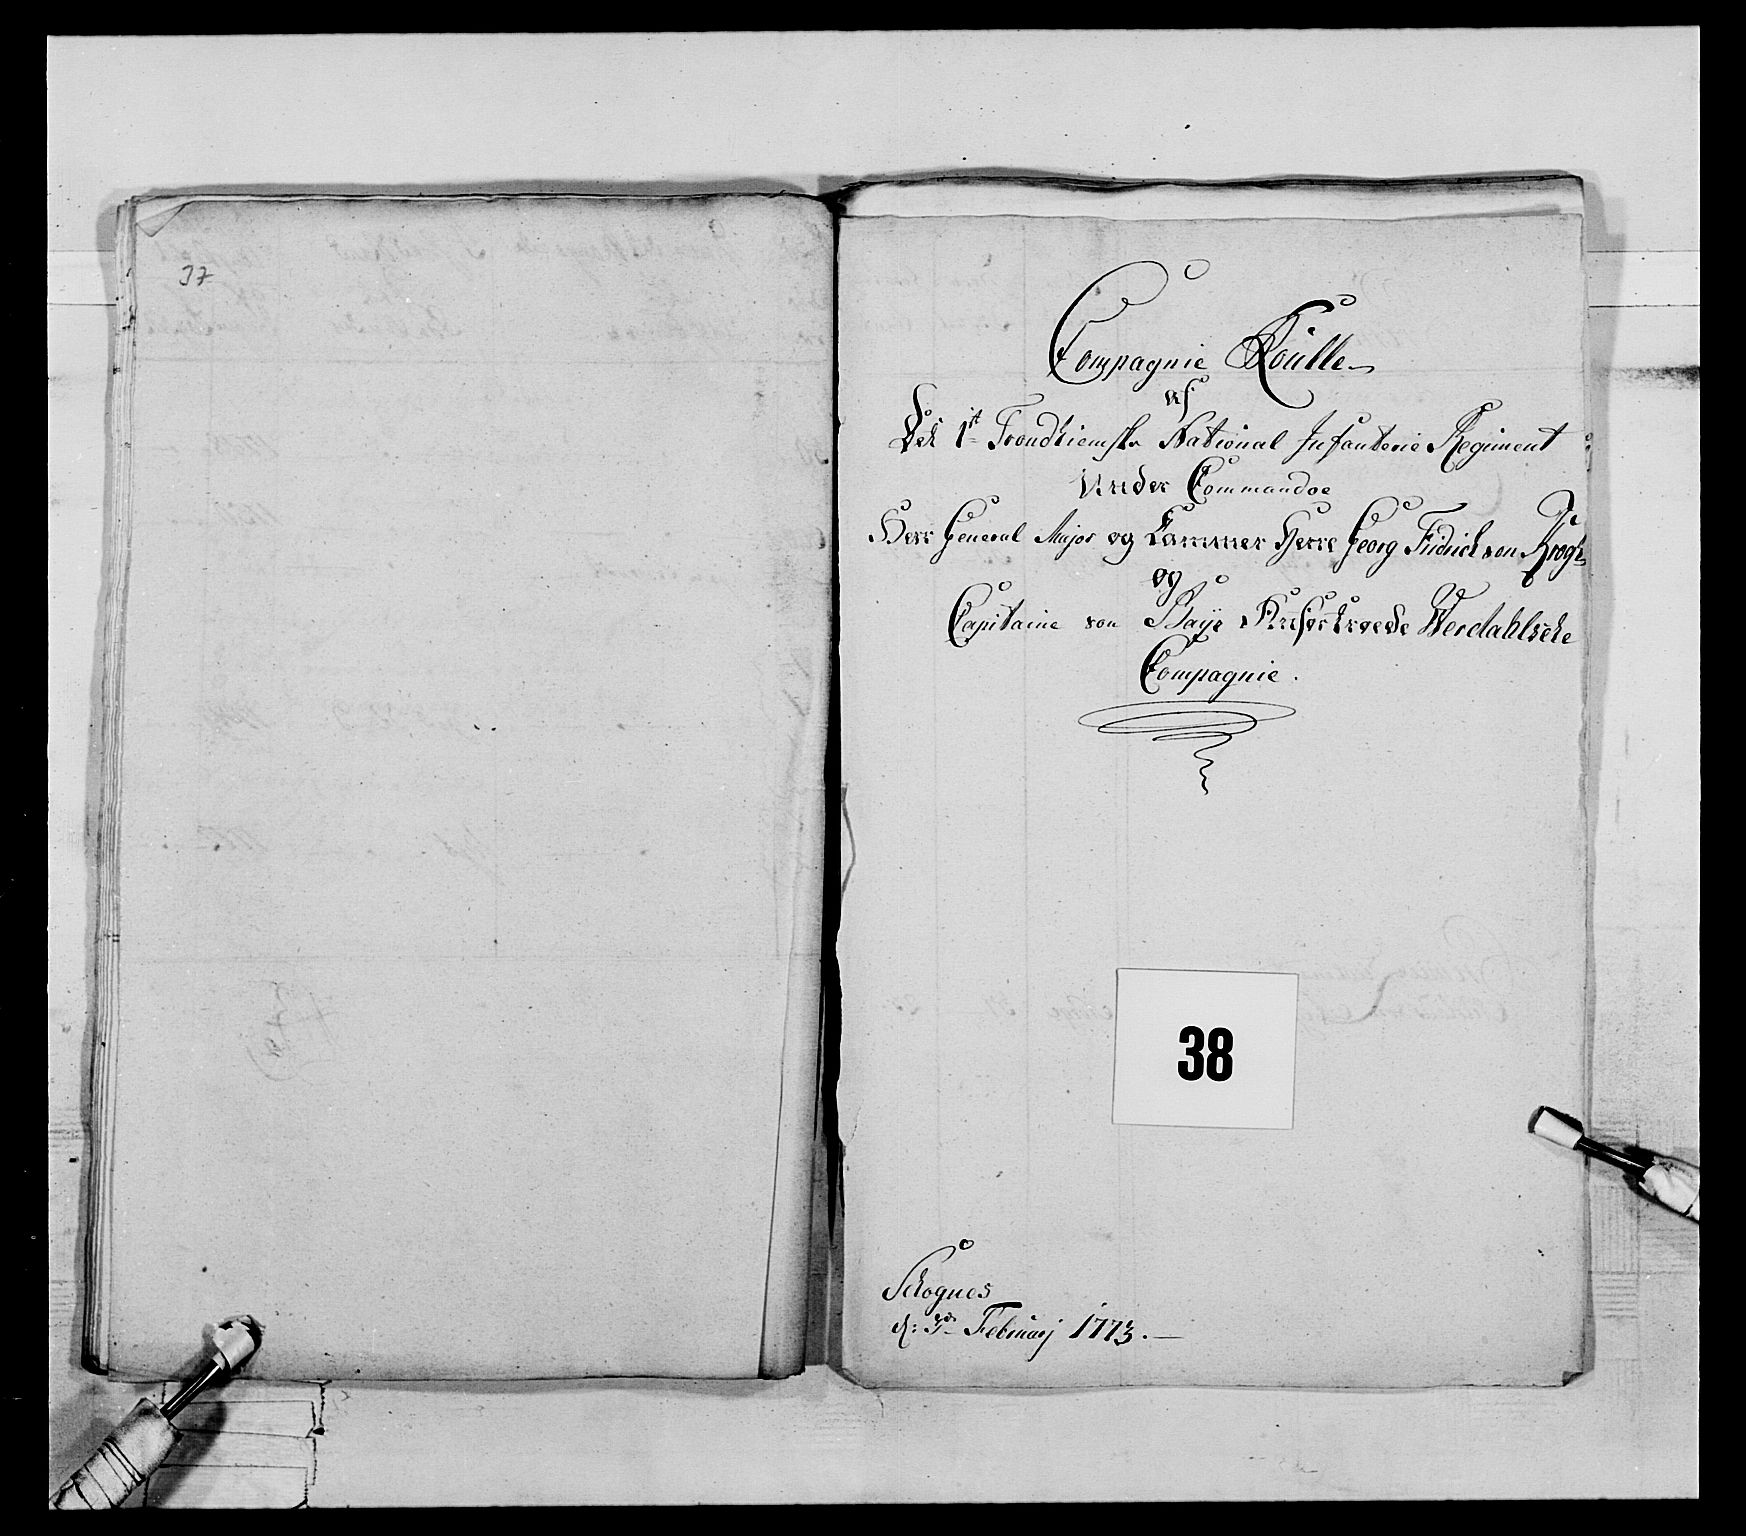 37
Compagnie Roulle
af
Det 1st Trondhiemske National Infanterie Regiment
Under Commandoe
Herr General Major og Kammer Herre Georg Fridrich von Krogh
og
Capitaine von Anfortroede Werdahlsche
Compagnie.
38
Schognes
d: Februarj 1773.